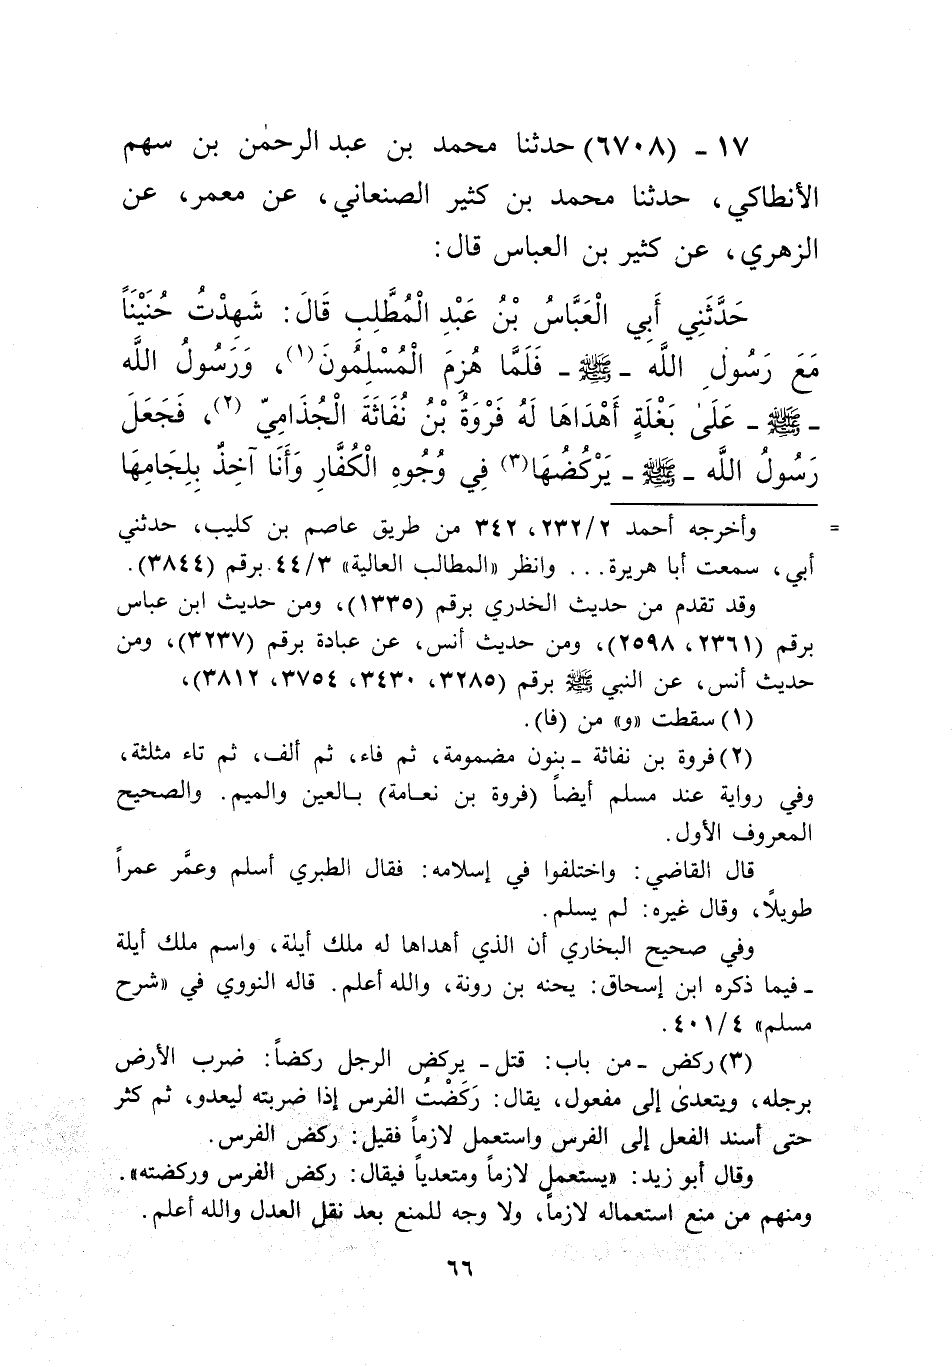 ١٧ ـ (٦٧٠٨) حدثنا محمد بن عبد الرحمٰن بن سهم
الأنطاكي، حدثنا محمد بن كثير الصنعاني، عن معمر، عن
الزهري، عن كثير بن العباس قال:
حَدَّثَنِي أَبِي الْعَبَّاسُ بْنُ عَبْدِ الْمُطَّلِبِ قَالَ: شَهِدْتُ حُنَيْنَاً
مَعَ رَسُولِ اللَّه ـ ﷺ ـ فَلَمَّا هُزِمَ الْمُسْلِمُونَ(١)، وَرَسُولُ اللَّه
ـ ﷺ ـ عَلَىٰ بَغْلَةٍ أَهْدَاهَا لَهُ فَرْوَةُ بْنُ نُفَاثَةَ الْجُذَامِيّ (٢)، فَجَعَلَ
رَسُولُ اللَّه ـ ﷺ ـ يَرْكُضُهَا(٣) فِي وُجُوهِ الْكُفَّارِ وَأَنَا آخِذٌ بِلِجَامِهَا
= وأخرجه أحمد ٢٣٢/٢، ٣٤٢ من طريق عاصم بن كليب، حدثني
أبي، سمعت أبا هريرة... وانظر «المطالب العالية» ٤٤/٣ برقم (٣٨٤٤).
وقد تقدم من حديث الخدري برقم (١٣٣٥)، ومن حديث ابن عباس
برقم (٢٣٦١، ٢٥٩٨)، ومن حديث أنس، عن عبادة برقم (٣٢٣٧)، ومن
حديث أنس، عن النبي ﷺ برقم (٣٢٨٥، ٣٤٣٠، ٣٧٥٤، ٣٨١٢)،
(١) سقطت «و» من (فا).
(٢) فروة بن نفاثة ـ بنون مضمومة، ثم فاء، ثم ألف، ثم تاء مثلثة،
وفي رواية عند مسلم أيضاً (فروة بن نعـامة) بـالعين والميم. والصحيح
المعروف الأول.
قال القاضي: واختلفوا في إسلامه: فقال الطبري أسلم وعمَّر عمراً
طويلًا، وقال غيره: لم يسلم.
وفي صحيح البخاري أن الذي أهداها له ملك أيلة، واسم ملك أيلة
ـ فيما ذكره ابن إسحاق: يحنه بن رونة، والله أعلم. قاله النووي في «شرح
مسلم» ٤٠١/٤.
(٣) ركض ـ من باب: قتل ـ يركض الرجل ركضاً: ضرب الأرض
برجله، ويتعدىٰ إلى مفعول، يقال: رَكَضْتُ الفرس إذا ضربته ليعدو، ثم كثر
حتى أسند الفعل إلى الفرس واستعمل لازماً فقيل: ركض الفرس.
وقال أبو زيد: «يستعمل لازماً ومتعدياً فيقال: ركض الفرس وركضته».
ومنهم من منع استعماله لازماً، ولا وجه للمنع بعد نقل العدل والله أعلم.
٦٦